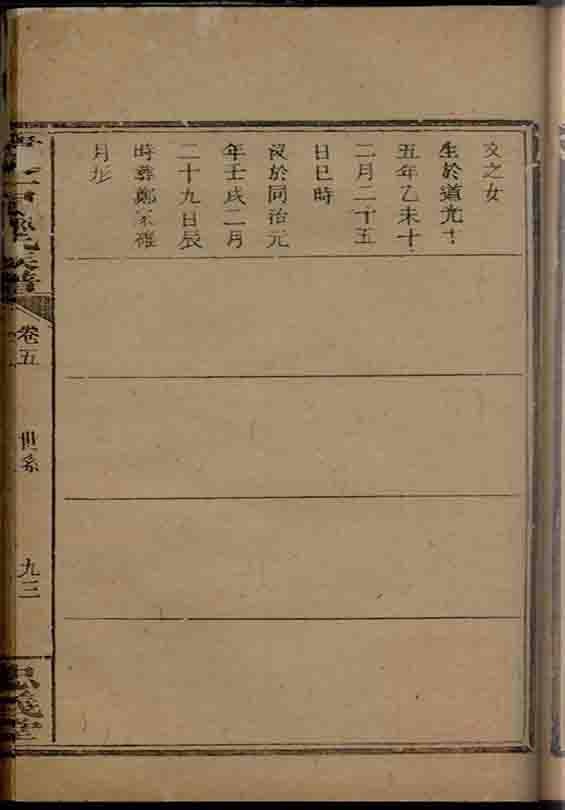 文之女
生於道光十
五年乙未十
二月二十五
日巳時
沒於同治元
年壬戌二月
二十九日辰
時葬鄭家碓
月形
卷五
世系
九三
忠義堂